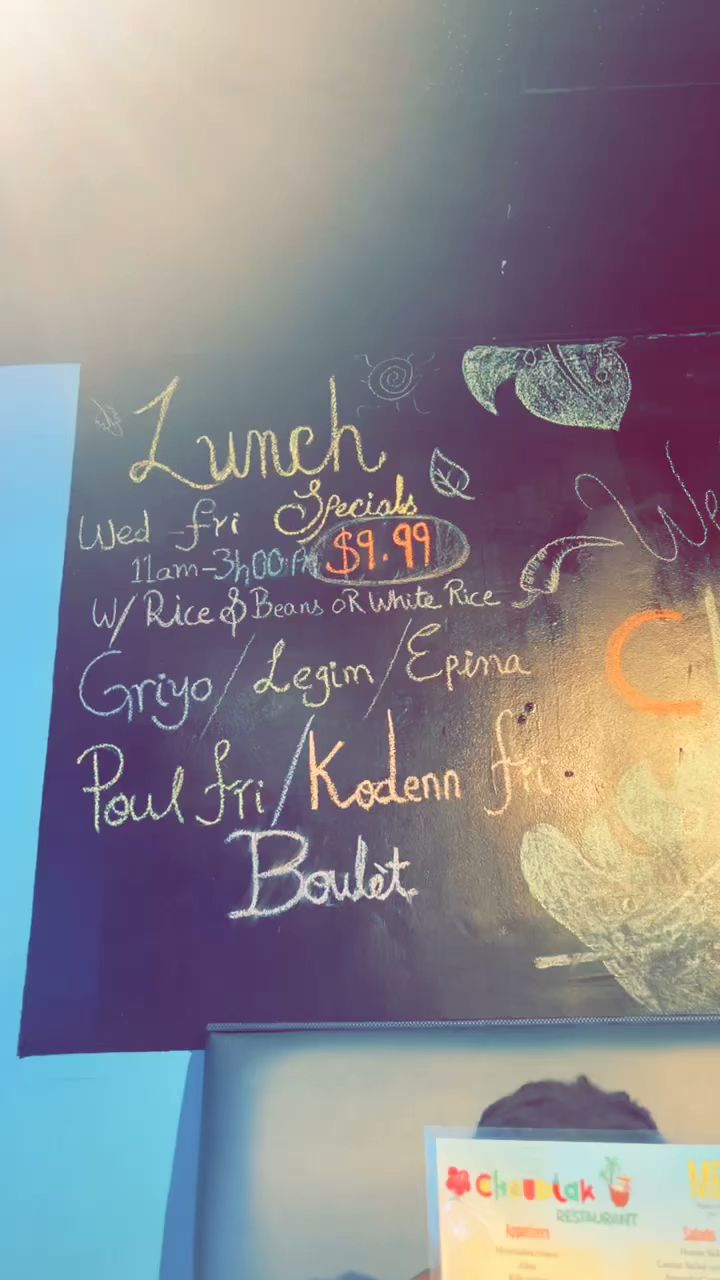 Lunch
Specials
Wed - fri
$9.99
11am-3h00 PM
W/ Rice & Beans oR White Rice
Griyo / Legim / Epina
Poul fri / Kodenn fri
Boulèt
We
C
Choublak
RESTAURANT
Appetizers
Salads